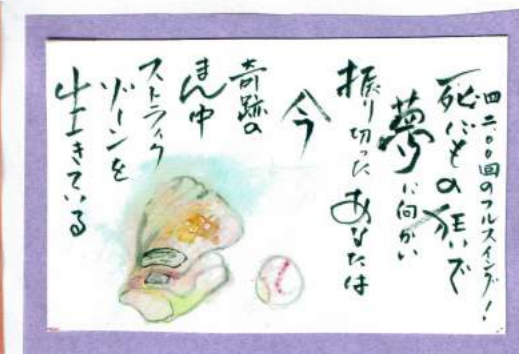 四二〇〇回のフルスイング!
死にもの狂いで
夢に向かい
振り切ったあなたは
今
奇跡の
まん中
ストライク
ゾーンを
生きている